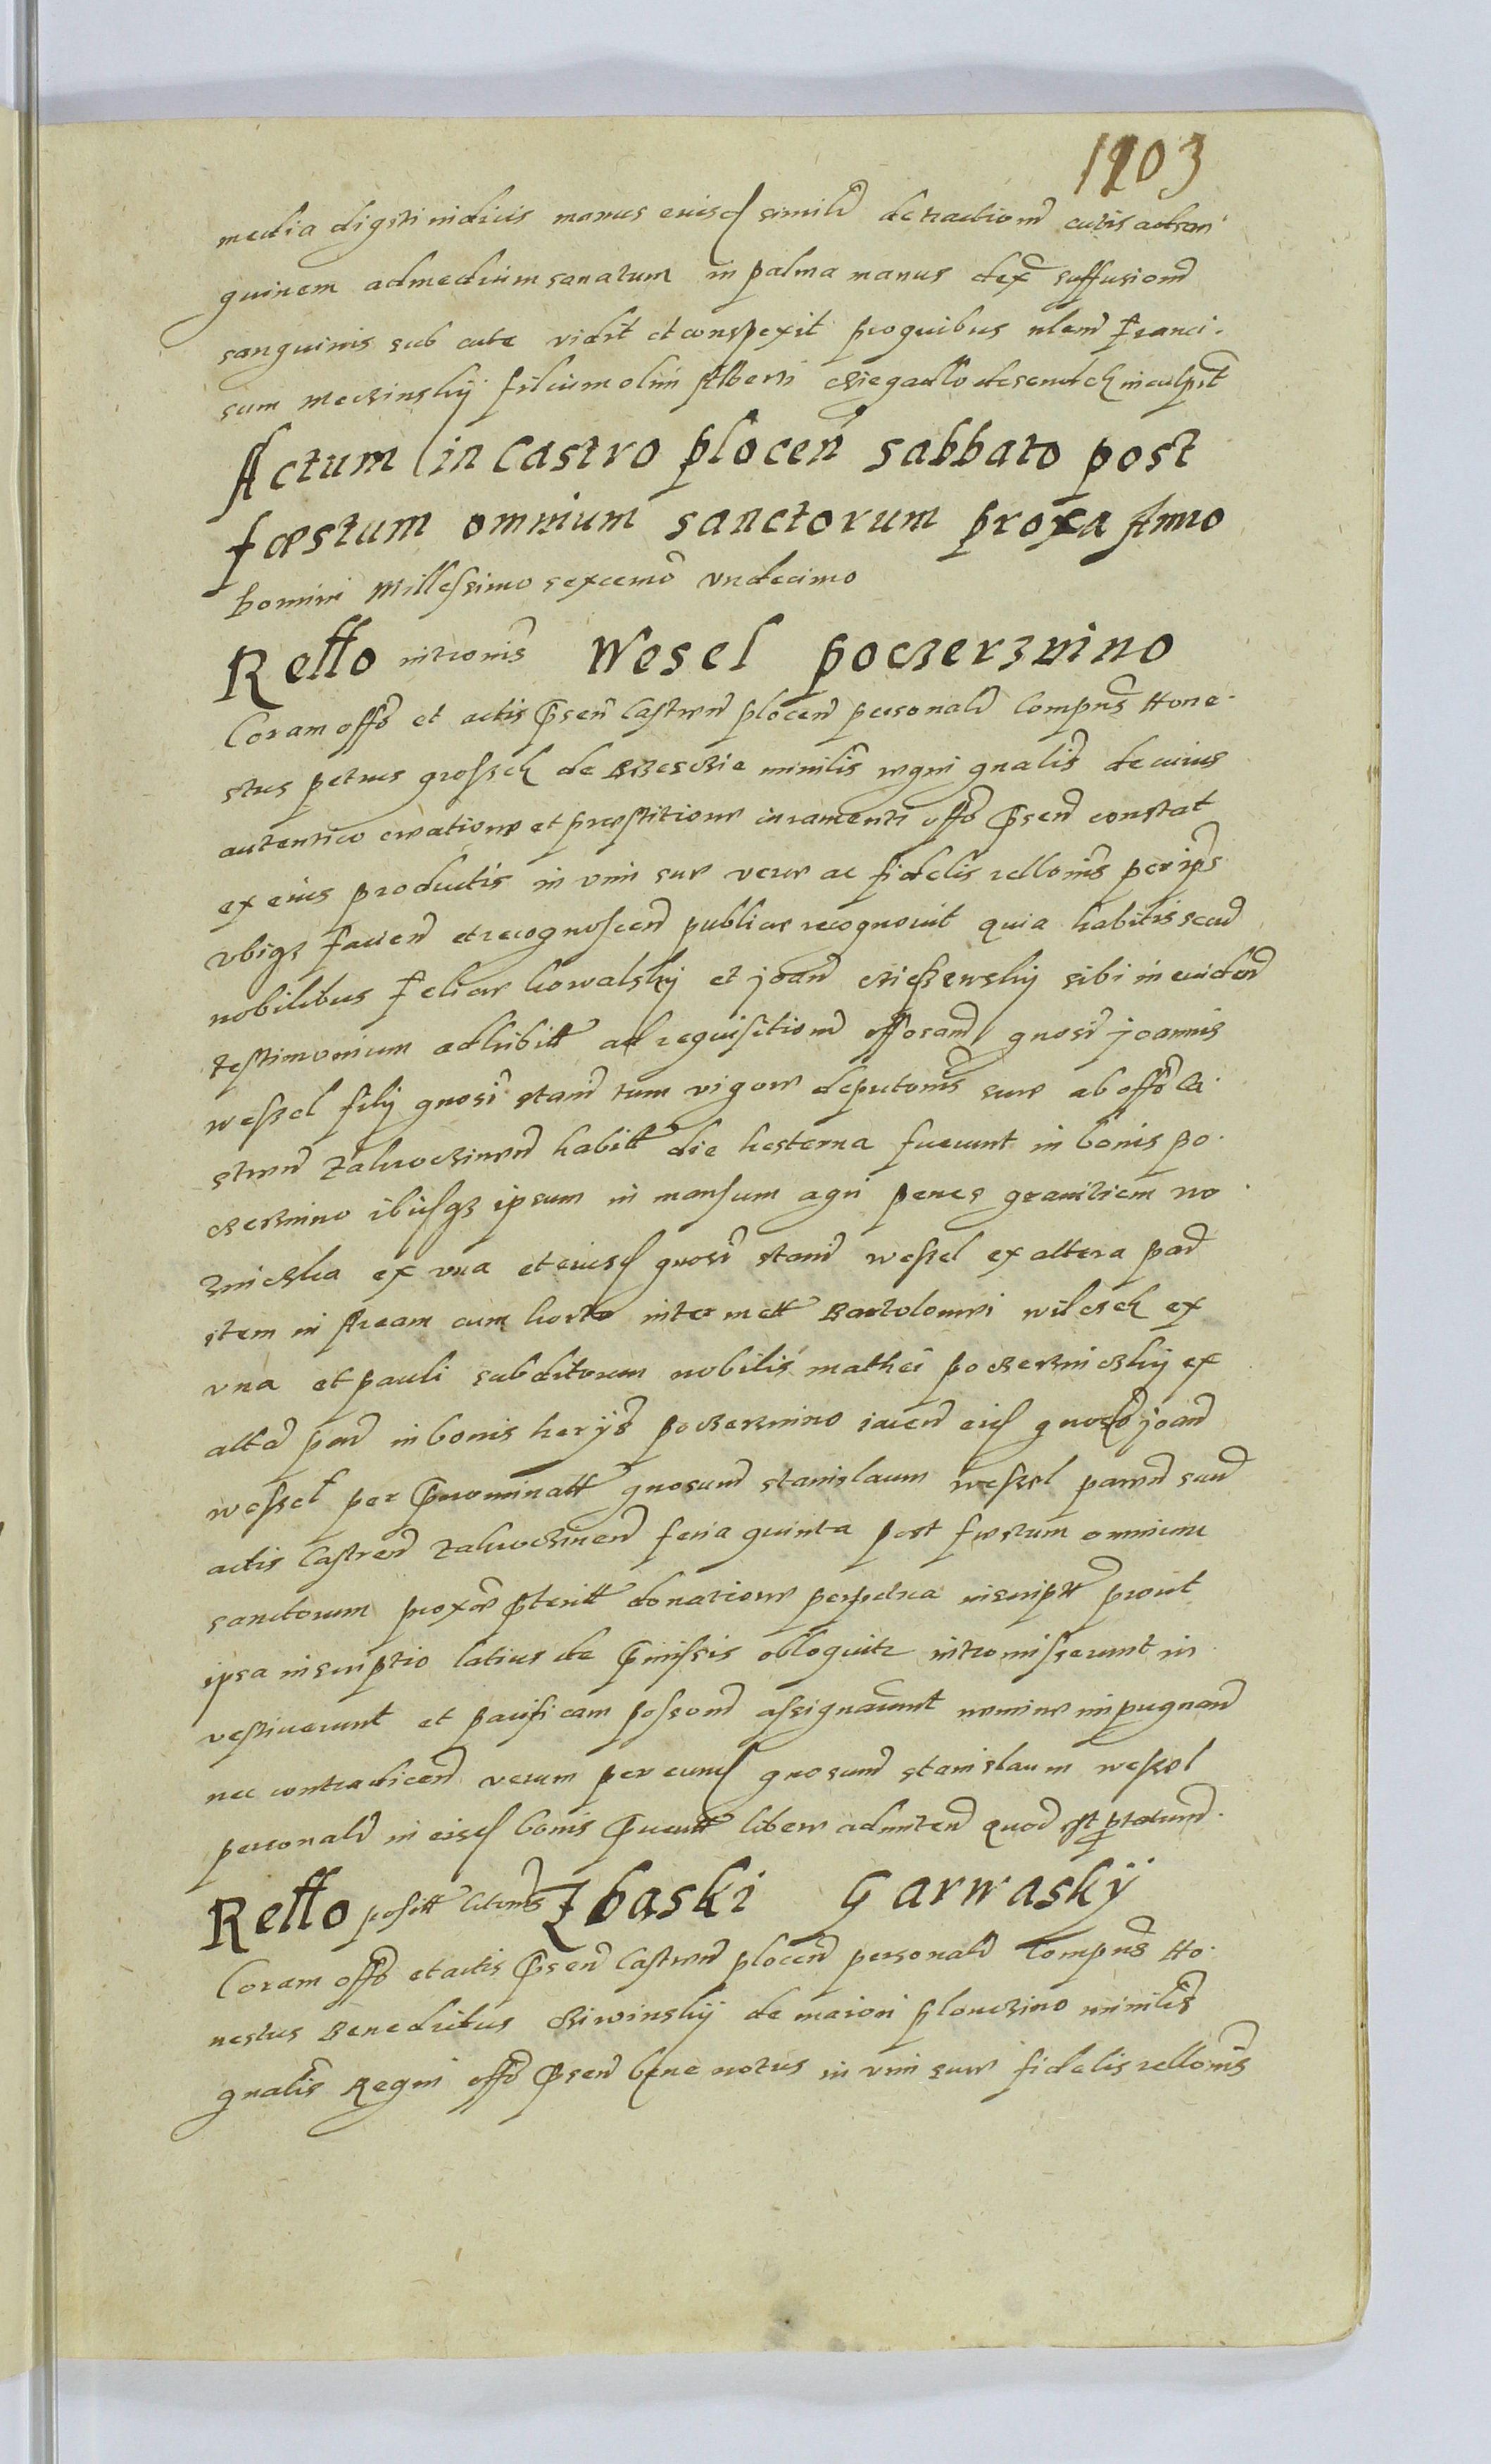 1203
media digiti indicis manus eiusd simile detractionem cutis ad san
guinem ad medium sanatum in palma manus dex suffusionem
sanguinis sub cute vidit et conspexit pro quibus nlem Franci.
scum Meczinskij filium olim Alberti inculpat
Actum in Castro plocen sabbato post
fæstum omnium sanctorum proxa Anno
Domini Millessimo sexcemo vndecimo
Rello intronis Wesel poczerznino
Coram offo et actis psen Castren plocen personal compns Hone.
stus petrus grosseck de Brzescze minilis regni gnalis de cuius
autentico creatione et præstitione iuramenti offo psen constat
ex eius productis in vim suæ veræ ac fidelis rellonis per ips
vbiqз facien et recognoscen publice recognouit quia habitis secu
nobilibus Felice kowalskij et joan sibi in euiden
testimonium adhibitt ad requisitionem gnosi joannis
wessel filij gnosi stani tum vigore deputonis suæ ab offo Ca.
stren zakroczimen habitt die hesterna fuerunt in bonis po.
czerznino ibusqз ipsum in mansum agri penes graniciem no
ex vna et eiusd gnosi stani wessel ex altera par
item in Aream cum horto inter mett Bartolomei wilczek ex
vna et pauli subditorum nobilis mathei poczerznickij ex
altera par in bonis herijs poczerznino iacen eid gnoso joan
wessel per prænominatt gnosum stanislaum wessel patrem suum
actis Castren zakroczimen feria quinta post fæstum omnium
sanctorum proxæ pteritt donatione perpetua inscriptt prout
ipsa inscriptio latius de pmissis obloquitr intromisserunt in
vestiuerunt et pacificam possonem assignarunt nemine impugnan
nec contradicen verum per eumd gnosum stanislaum wessel
personal in eisd bonis libere admitten quod est ptatum.
Rello positt Citonis Zbaski Garwaskÿ
Coram offo et actis psen Castren plocen personal Compns Ho.
nestus Benedictus de maiori plonczino minilis
gnalis Regni offo psen bene notus in vim suæ fidelis rellonis